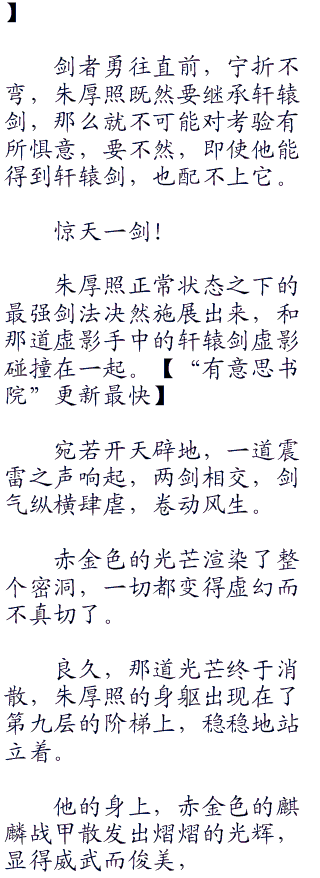 】
剑者勇往直前，宁折不
弯，朱厚照既然要继承轩辕
剑，那么就不可能对考验有
所惧意，要不然，即使他能
得到轩辕剑，也配不上它。
惊天一剑！
朱厚照正常状态之下的
最强剑法决然施展出来，和
那道虚影手中的轩辕剑虚影
碰撞在一起。【“有意思书
院”更新最快】
宛若开天辟地，一道震
雷之声响起，两剑相交，剑
气纵横肆虐，卷动风生。
赤金色的光芒渲染了整
个密洞，一切都变得虚幻而
不真切了。
良久，那道光芒终于消
散，朱厚照的身躯出现在了
第九层的阶梯上，稳稳地站
立着。
他的身上，赤金色的麒
麟战甲散发出熠熠的光辉，
显得威武而俊美，